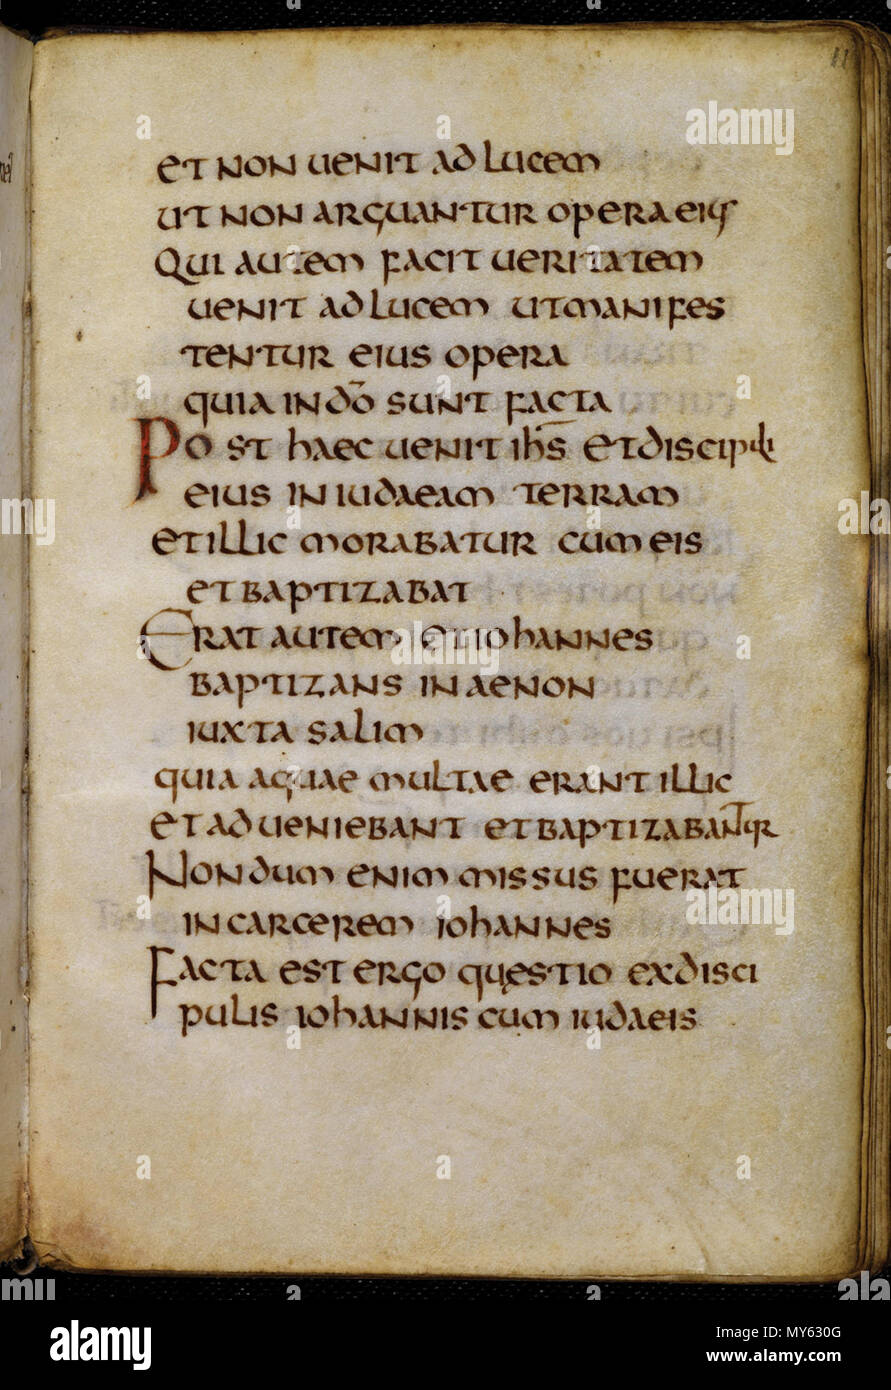 11
et non uenit ad lucem
ut non arguantur opera eius
Qui autem facit ueritatem
uenit ad lucem ut manifes
tentur eius opera
quia in dō sunt facta
Post haec uenit ihs̄ et discipuli
eius in iudaeam terram
et illic morabatur cum eis
et baptizabat
Erat autem et iohannes
baptizans in aenon
iuxta salim
quia aquae multae erant illic
et adueniebant et baptizabantur
Nondum enim missus fuerat
in carcerem iohannes
Facta est ergo quęstio ex disci
pulis iohannis cum iudaeis
alamy
Image ID: MY630G
www.alamy.com